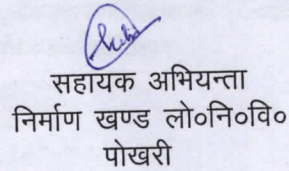 सहायक अभियन्ता
निर्माण खण्ड लो०नि०वि०
पोखरी